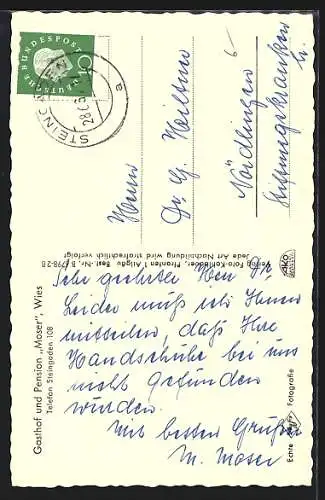 Gasthof und Pension „Moser", Wies
Telefon Steingaden 108
Sehr geehrter Herr Dr,
Leider muß ich Ihnen
mitteilen, daß Ihre
Handschuhe bei uns
nicht gefunden
wurden.
Mit besten Grüßen
M. Moser
Echte Fotografie
Verlag Foto-Kehlbäder, Pfronten 1 Allgäu Best.-Nr. B 6798-28
Jede Art Nachbildung wird strafrechtlich verfolgt
AKO
DEUTSCHE BUNDESPOST
STEING
28
a
Herrn
Dr. G.
Nördlingen